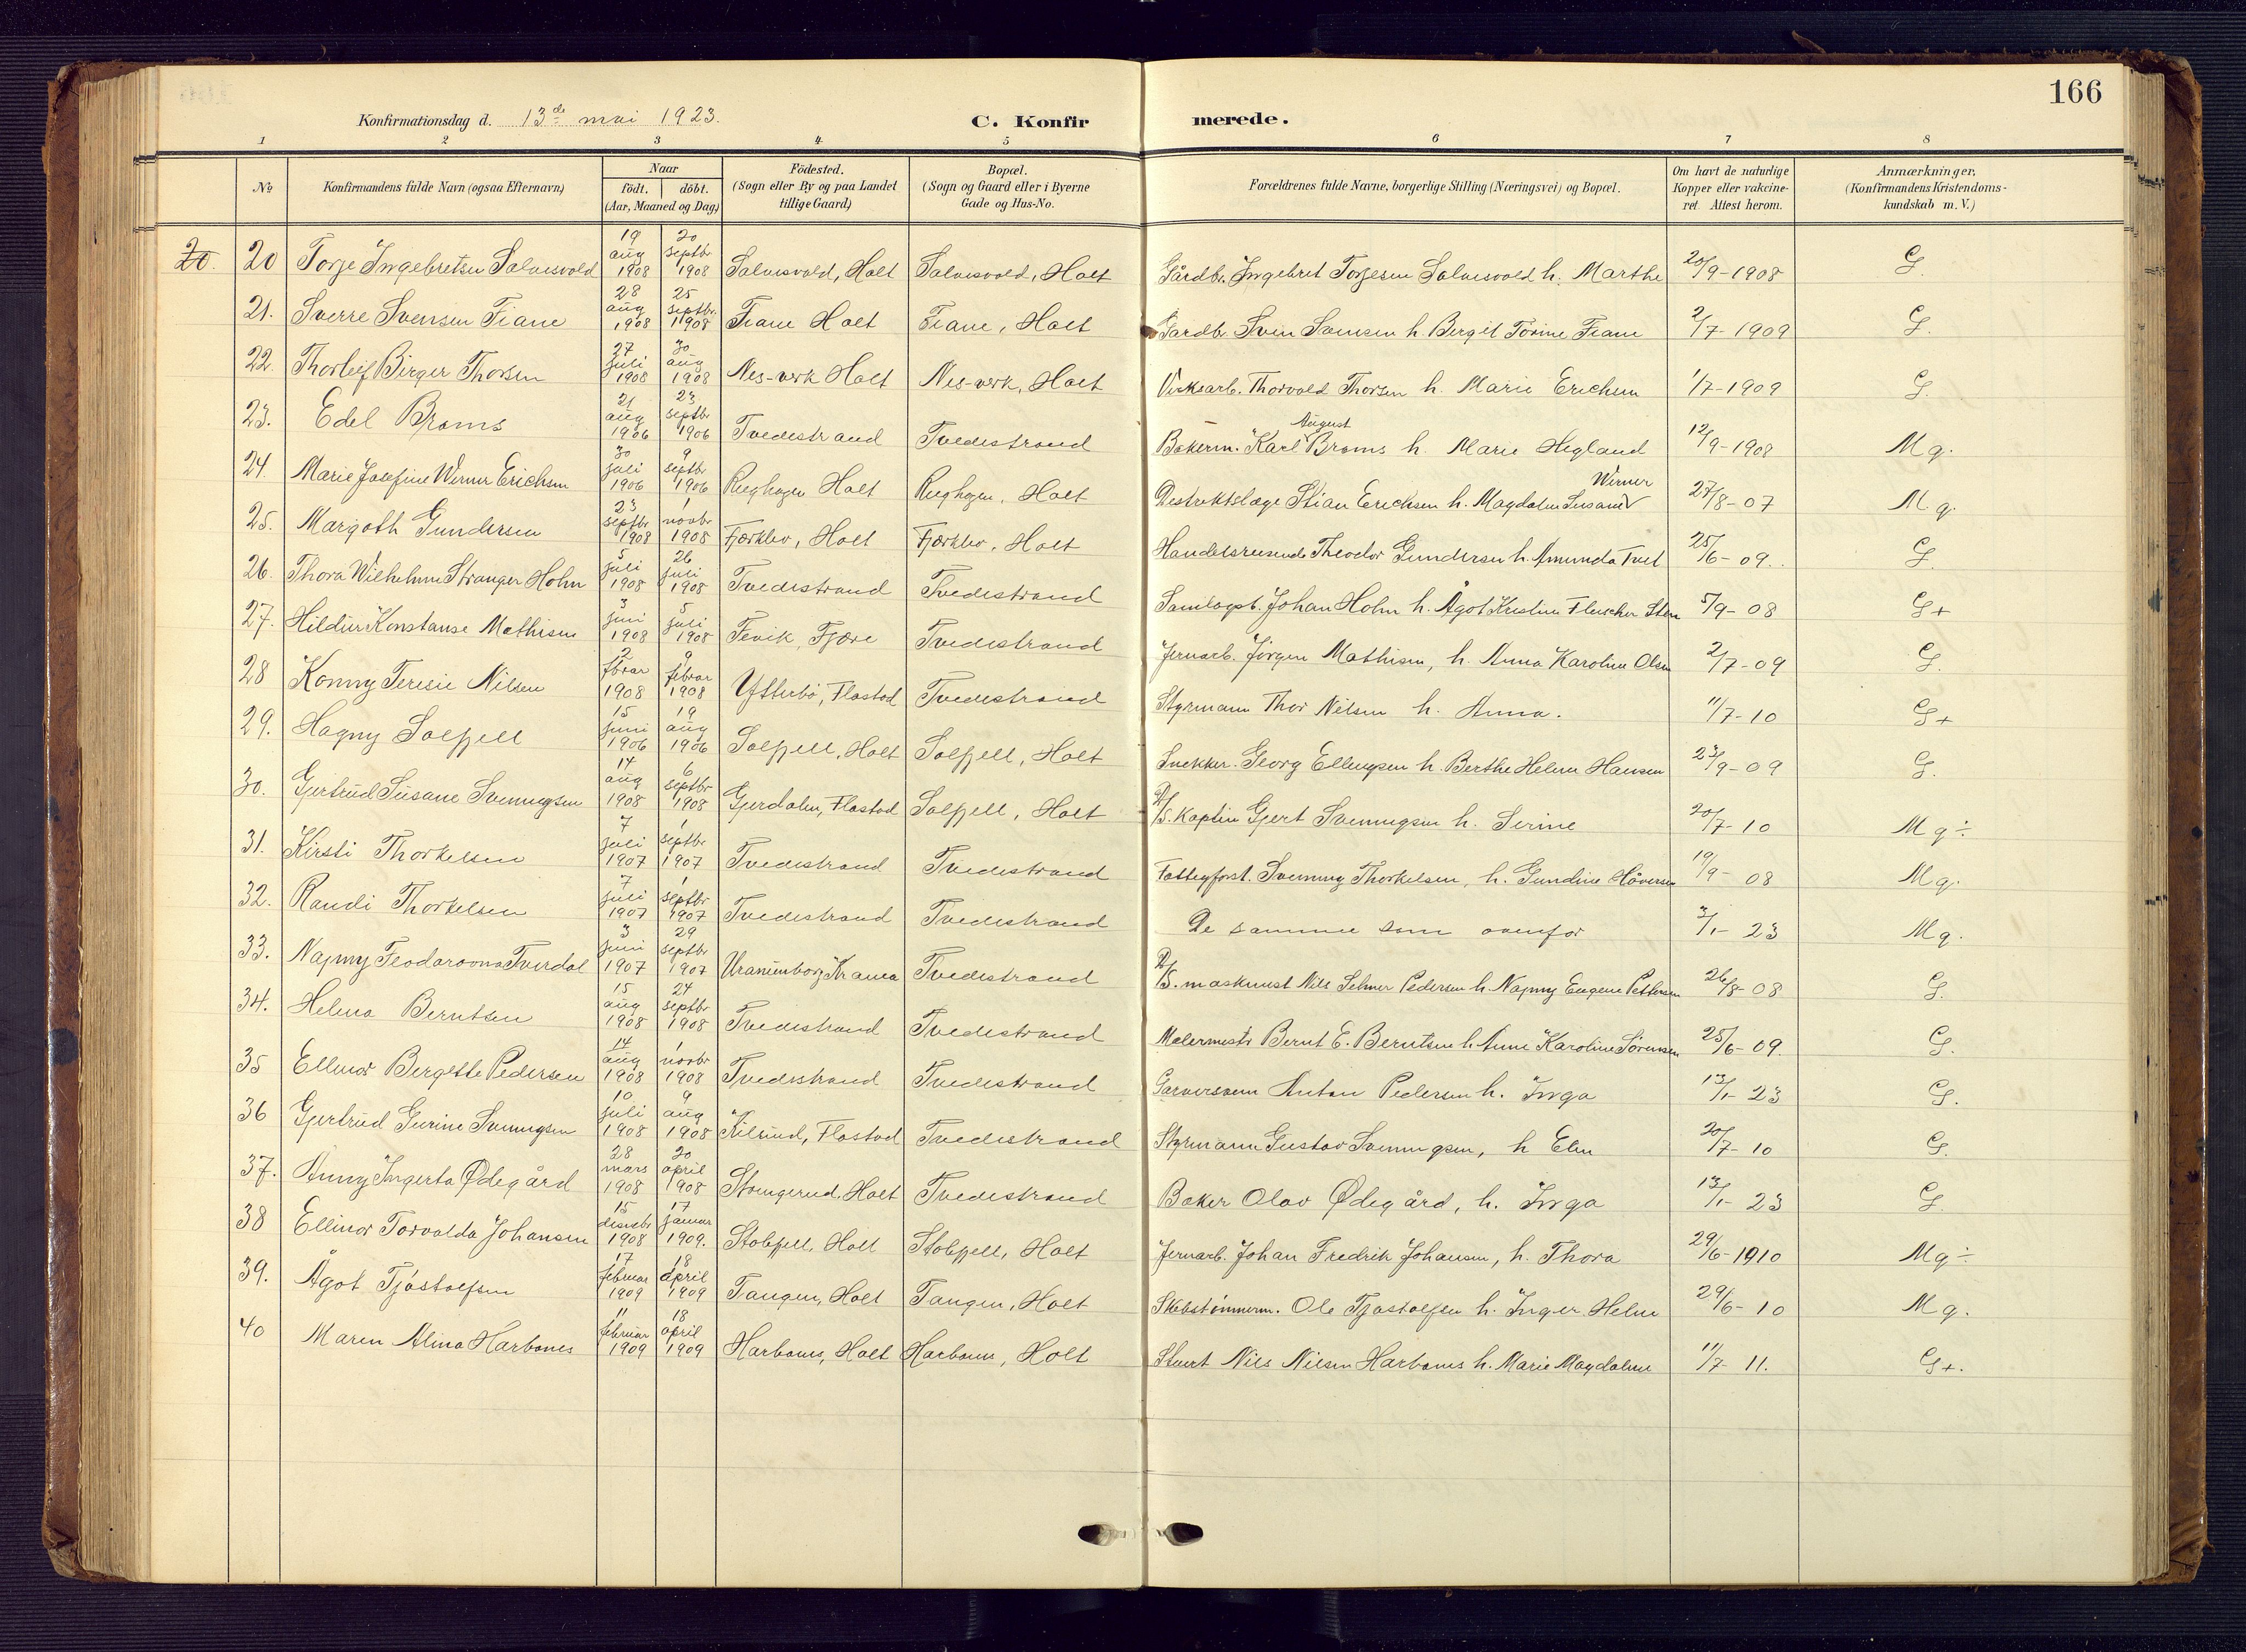 166
Konfirmationsdag d. 13de mai 1923. C. Konfirmerede.
1 2 3 4 5 6 7 8
No Konfirmandens fulde Navn (ogsaa Efternavn) Naar födt. döbt. (Aar, Maaned og Dag) Födested. (Sogn eller By og paa Landet tillige Gaard) Bopæl. (Sogn og Gaard eller i Byerne Gade og Hus-No. Forældrenes fulde Navne, borgerlige Stilling (Næringsvei) og Bopæl. Om havt de naturlige Kopper eller vakcineret. Attest herom. Anmærkninger. (Konfirmandens Kristendomskundskab m. V.)
20. 20 Torje Ingebretsen Salvesvold 19 aug 1908 20 septbr 1908 Salvesvold, Holt Salvesvold, Holt Gårdbr. Ingebret Torjesen Salvesvold h. Marthe 20/9-1908 G.
21. Sverre Svensen Fiane 28 aug 1908 25 septbr. 1908 Fiane Holt Fiane, Holt Gardbr. Sven Svensen h. Bergit Tovine Fiane 2/7-1909 G.
22. Thorleif Birger Thorsen 27 juli 1908 30 aug 1908 Nes-verk Holt Nes-verk, Holt Verksarb. Thorvald Thorsen h. Marie Erichsen 1/7-1909 G.
23. Edel Broms 21 aug 1906 23 septbr 1906 Tvedestrand Tvedestrand Bakerm. Karl August Broms h. Marie Hegland 12/9-1908 Mg.
24. Marie Josefine Werner Erichsen 30 juli 1906 9 septbr 1906 Rughagen Holt Rughagen, Holt Destriktslæge Stian Erichsen h. Magdalen Susanne Werner 27/8-07 Mg.
25. Margoth Gundersen 23 septbr 1908 1 novbr 1908 Færkleiv, Holt Færkleiv, Holt Handelsreisende Theodor Gundersen h. Amunda Tvet 25/6-09. G.
26. Thora Wilhelmine Stranger Holm 5 juli 1908 26 juli 1908 Tvedestrand Tvedestrand Samlagsb. Johan Holm h. Ågot Kristine Fleischer Sten 5/9-08 G+
27. Hildur Konstanse Mathisen 3 juni 1908 5 juli 1908 Fevik, Fjære Tvedestrand Jernarb. Jørgen Mathisen, h. Anna Karoline Olsen 2/7-09 G.
28 Konny Teresie Nilsen 2 febrar 1908 9 febrar 1908 Ytterbø, Flostad Tvedestrand Styrmann Thor Nilsen h. Anna. 11/7-10 G+
29. Hagny Solfjell 15 juni 1906 19 aug 1906 Solfjell, Holt Solfjell, Holt Snekker. Georg Ellingsen h. Berthe Helene Hansen 23/9-09 G.
30. Gjertrud Susane Svennugsen 14 aug 1908 6 septbr 1908 Gjerdalen, Flostad Solfjell, Holt D/S. Kaptein Gjert Svennugsen h. Serine 20/7-10 Mg÷
31. Kirsti Thorkelsen 7 juli 1907 1 septbr 1907 Tvedestrand Tvedestrand Fattigforst. Svennung Thorkelsen, h. Gundine Håversen 19/9-08 Mg.
32. Randi Thorkelsen 7 juli 1907 1 septbr 1907 Tvedestrand Tvedestrand De samme som ovenfor 3/1-23 Mg.
33. Najmy Feodorovna Tverdal 3 juni 1907 29 septbr 1907 Uranienborg Krania Tvedestrand D/S. maskinist Nils Selmer Pedersen h. Najmy Eugene Pettersen 26/8-08 G.
34. Helena Berntsen 15 aug 1908 24 septbr 1908 Tvedestrand Tvedestrand Malermestr Bernt E. Berntsen h. Anne Karoline Sørensen 25/6-09. G.
35 Ellinor Bergette Pedersen 14 aug 1908 1 novbr 1908 Tvedestrand Tvedestrand Garversvenn Anton Pedersen h. Inga 13/1-23 G.
36 Gjertrud Gurine Svennugsen 10 juli 1908 9 aug 1908 Kilsund, Flostad Tvedestrand Styrmann Gustav Svennugsen, h Elen 20/7-10 G.
37. Anny Ingerta Ødegård 28 mars 1908 20 april 1908 Strengerud, Holt Tvedestrand Baker Olav Ødegård, h. Inga 13/1-23 G.
38 Ellinor Torvalda Johansen 15 desmbr 1908 17 januar 1909. Stolsfjell, Holt Stolsfjell, Holt Jernarb. Johan Fredrik Johansen, h. Thora 29/6-1910 Mg÷
39. Ågot Tjøstolfsen 17 februar 1909 18 april 1909 Tangen, Holt Tangen, Holt Skibstømmerm. Ole Tjøstolfsen h. Inger Helene 29/6-10 Mg.
40 Maren Alina Harbones 11 februar 1909 18 april 1909 Harbones, Holt Harbones, Holt Stuert Nils Nilsen Harbones h. Marie Magdalene 11/7-11. G+.